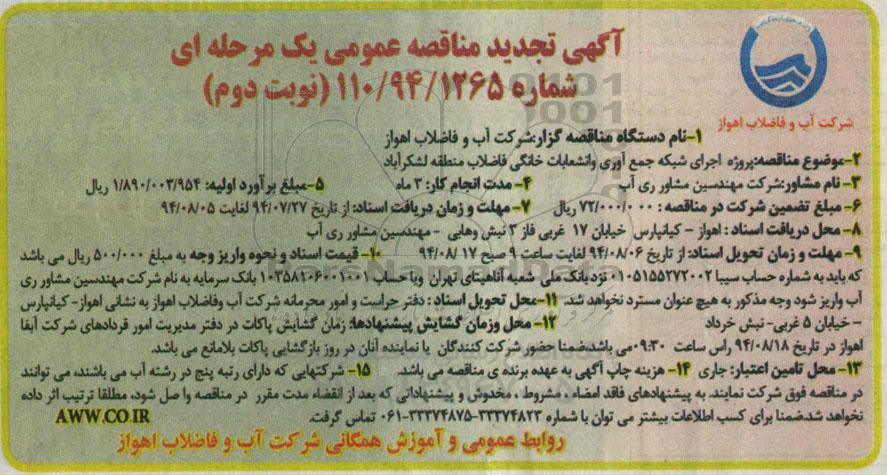 آگهی تجدید مناقصه عمومی یک مرحله ای
شماره ۱۱۰/۹۴/۱۲۶۵ (نوبت دوم)
شرکت آب و فاضلاب اهواز
۱-نام دستگاه مناقصه گزار:شرکت آب و فاضلاب اهواز
۲-موضوع مناقصه:پروژه اجرای شبکه جمع آوری وانشعابات خانگی فاضلاب منطقه لشکرآباد
۳- نام مشاور:شرکت مهندسین مشاور ری آب ۴- مدت انجام کار: ۳ ماه ۵-مبلغ برآورد اولیه: ۱/۸۹۰/۰۰۳/۹۵۴ ریال
۶- مبلغ تضمین شرکت در مناقصه : ۷۲/۰۰۰/۰۰۰ ریال ۷- مهلت و زمان دریافت اسناد: از تاریخ ۹۴/۰۷/۲۷ لغایت ۹۴/۰۸/۰۵
۸- محل دریافت اسناد : اهواز - کیانپارس خیابان ۱۷ غربی فاز ۳ نبش وهابی - مهندسین مشاور ری آب
۹- مهلت و زمان تحویل اسناد: از تاریخ ۹۴/۰۸/۰۶ لغایت ساعت ۹ صبح ۹۴/۰۸/۱۷ ۱۰- قیمت اسناد و نحوه واریز وجه به مبلغ ۵۰۰/۰۰۰ ریال می باشد
که باید به شماره حساب سیبا ۰۱۰۵۱۵۵۲۷۲۰۰۲ نزد بانک ملی شعبه آناهیتای تهران ویا حساب ۱۰۲۵۸۱۰۶۰۰۱۰۰۱ بانک سرمایه به نام شرکت مهندسین مشاور ری
آب واریز شود وجه مذکور به هیچ عنوان مسترد نخواهد شد. ۱۱-محل تحویل اسناد : دفتر حراست و امور محرمانه شرکت آب وفاضلاب اهواز به نشانی اهواز- کیانپارس
- خیابان ۵ غربی- نبش خرداد ۱۲- محل وزمان گشایش پیشنهادها: زمان گشایش پاکات در دفتر مدیریت امور قردادهای شرکت آبفا
اهواز در تاریخ ۹۴/۰۸/۱۸ راس ساعت ۰۹:۳۰ می باشد.ضمنا حضور شرکت کنندگان یا نماینده آنان در روز بازگشایی پاکات بلامانع می باشد.
۱۳- محل تامین اعتبار: جاری ۱۴- هزینه چاپ آگهی به عهده برنده ی مناقصه می باشد. ۱۵- شرکتهایی که دارای رتبه پنج در رشته آب می باشند، می توانند
در مناقصه فوق شرکت نمایند. به پیشنهادهای فاقد امضاء ، مشروط ، مخدوش و پیشنهاداتی که بعد از انقضاء مدت مقرر در مناقصه وا صل شود، مطلقا ترتیب اثر داده
نخواهد شد.ضمنا برای کسب اطلاعات بیشتر می توان با شماره ۳۳۳۷۴۸۲۳-۳۳۳۷۴۸۷۵-۰۶۱ تماس گرفت. AWW.CO.IR
روابط عمومی و آموزش همگانی شرکت آب و فاضلاب اهواز